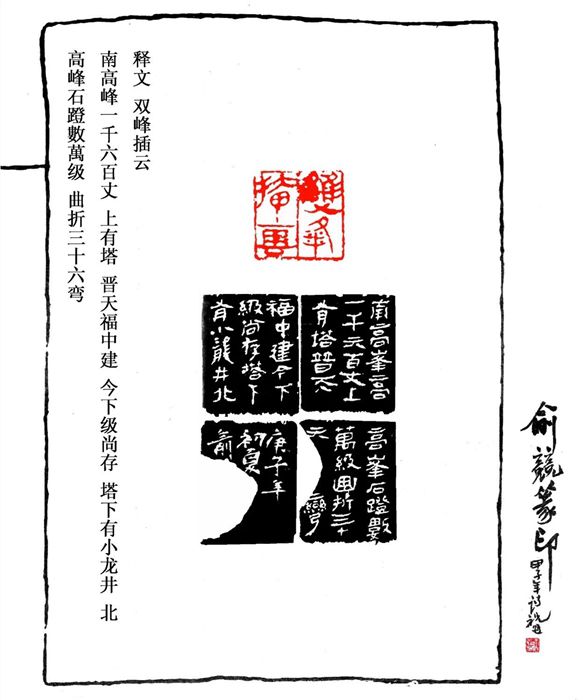 俞競篆印
甲子年
释文 双峰插云
南高峰一千六百丈 上有塔 晋天福中建 今下级尚存 塔下有小龙井 北
高峰石蹬數萬级 曲折三十六弯
雙峯
插雲
南高峯高
一千六百丈上
有塔晉天
福中建今下
級尚存塔下
有小龍井北
高峯石蹬數
萬級曲折三十
六彎
庚子年
初夏
俞